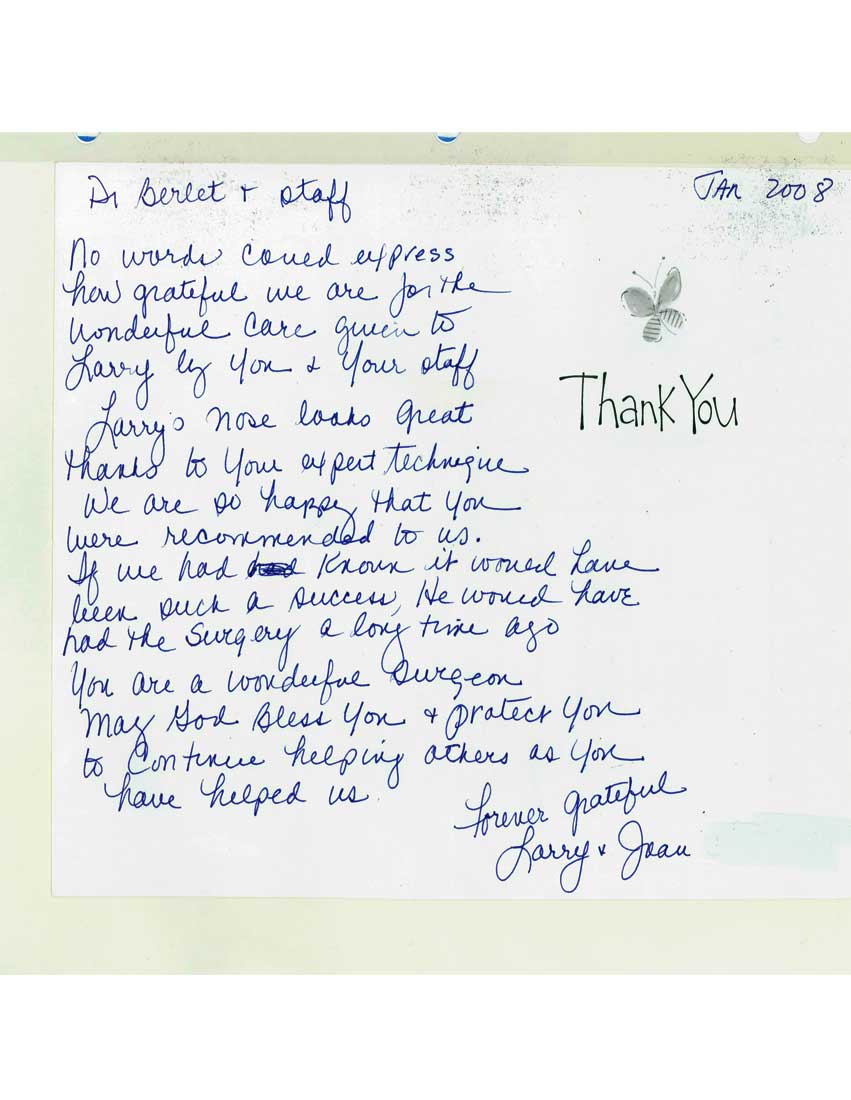 Dr Berlet + staff
Jan 2008
No words could express
how grateful we are for the
wonderful care given to
Larry by you & your staff
Larry's nose looks great
thanks to your expert technique
We are so happy that you
were recommended to us.
If we had known it would have
been such a success, He would have
had the surgery a long time ago
You are a wonderful surgeon
May God Bless You + protect you
to continue helping others as you
have helped us.
Forever grateful
Larry & Joan
Thank You